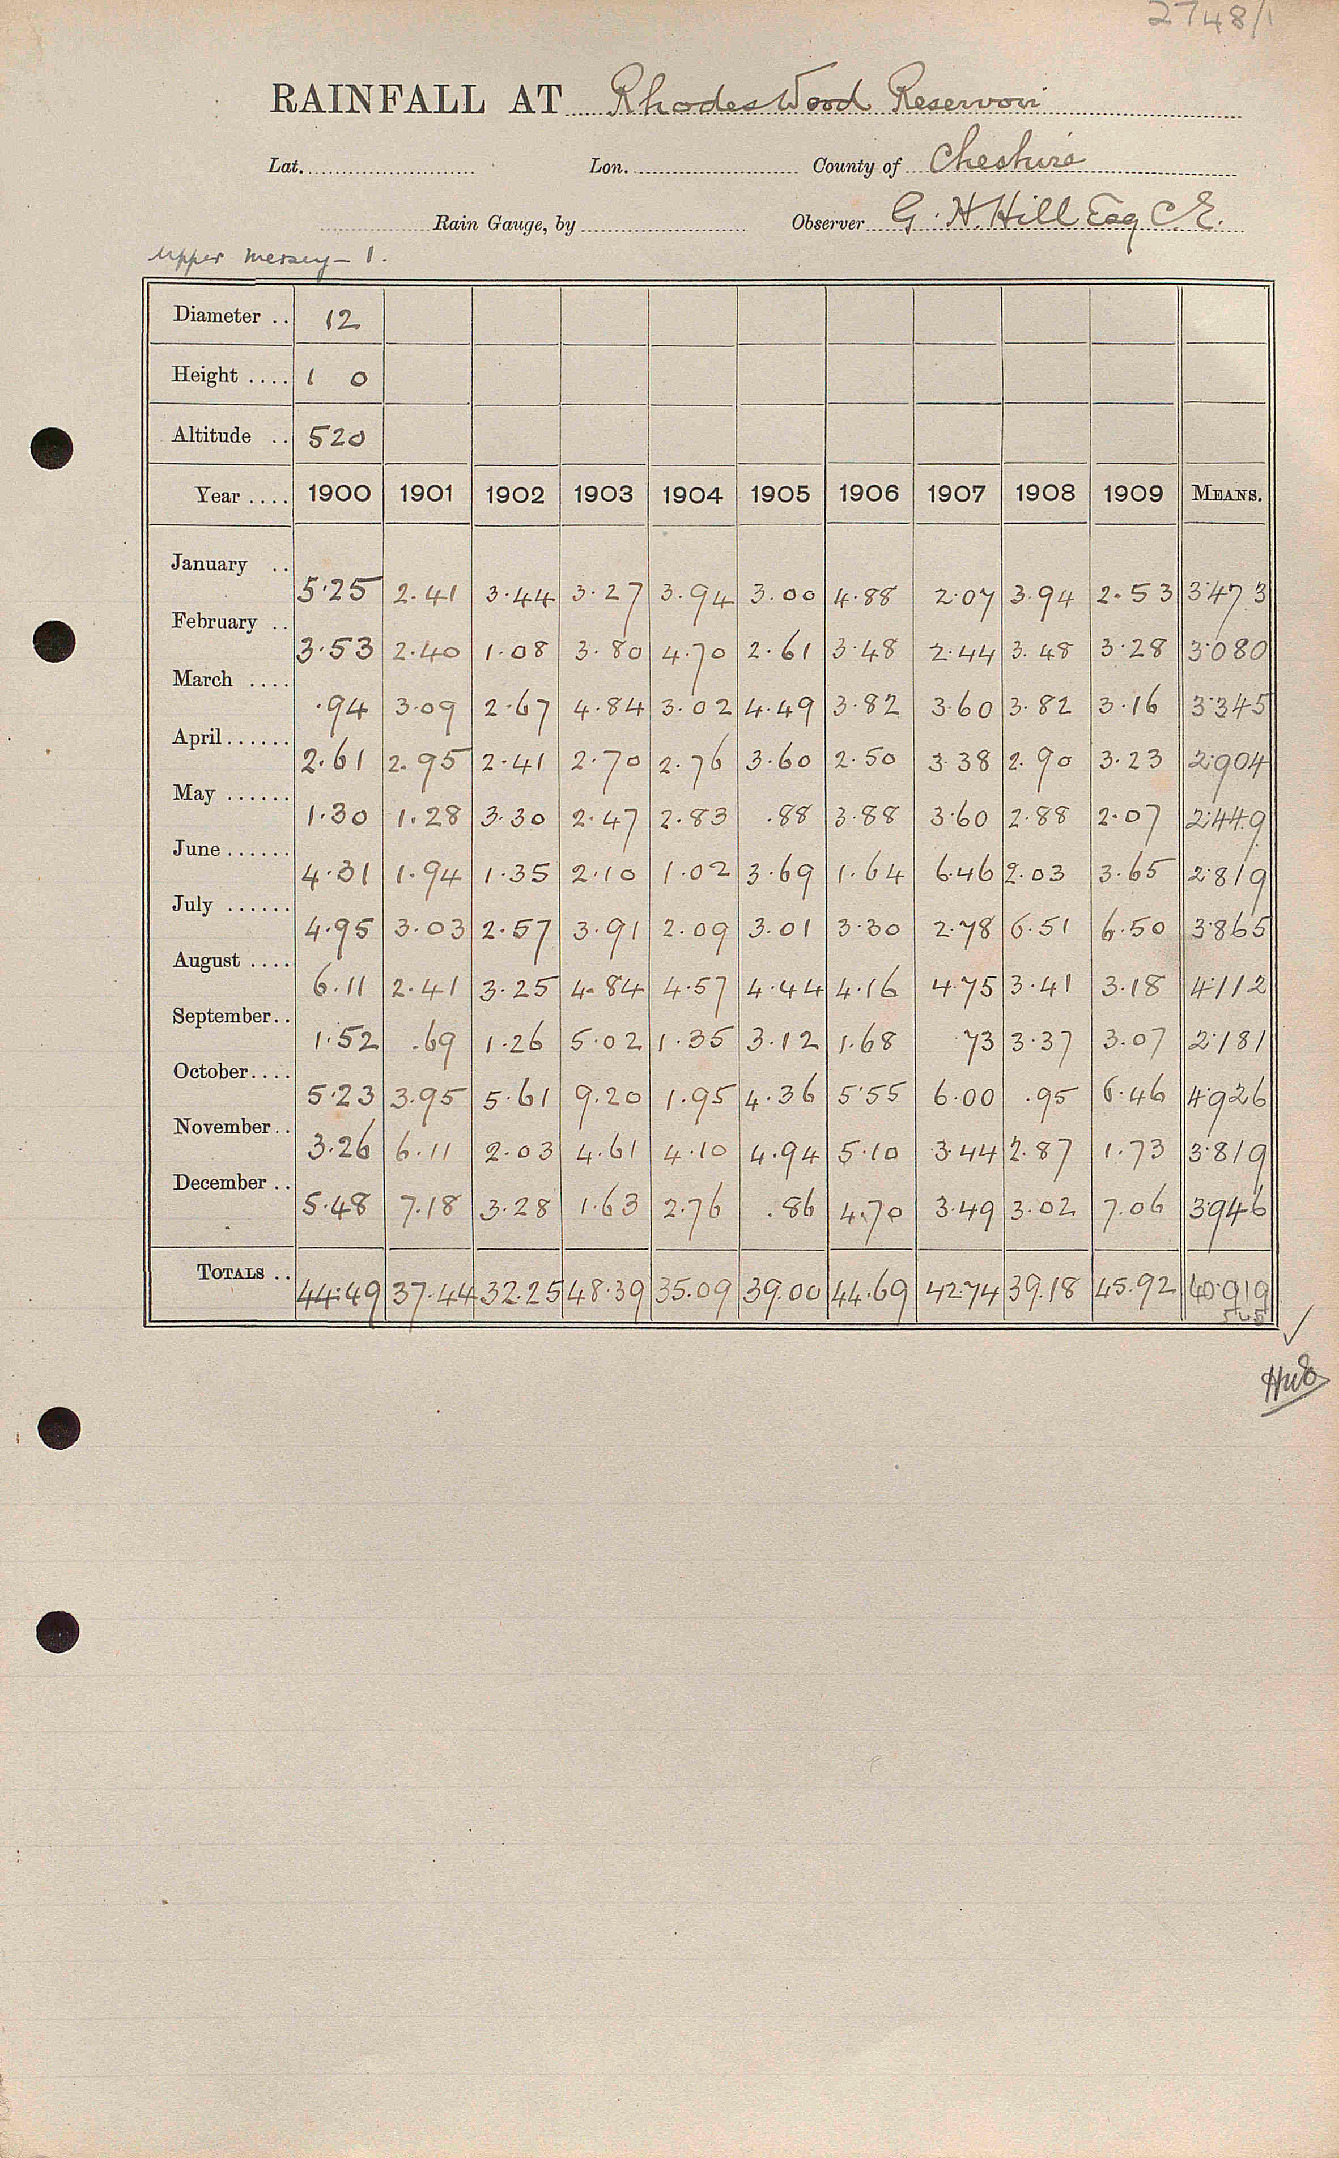 2748/1
RAINFALL AT Rhodes Wood Reservoir
Lat. Lon. County of Cheshire
Rain Gauge, by Observer G. H. Hill Esq C.E.
Upper Mersey - 1.
Diameter .. 12
Height .... 1 0
Altitude .. 520
Year .... 1900 1901 1902 1903 1904 1905 1906 1907 1908 1909 MEANS.
January .. 5.25 2.41 3.44 3.27 3.94 3.00 4.88 2.07 3.94 2.53 3.473
February .. 3.53 2.40 1.08 3.80 4.70 2.61 3.48 2.44 3.48 3.28 3.080
March .... .94 3.09 2.67 4.84 3.02 4.49 3.82 3.60 3.82 3.16 3.345
April...... 2.61 2.95 2.41 2.70 2.76 3.60 2.50 3.38 2.90 3.23 2.904
May ...... 1.30 1.28 3.30 2.47 2.83 .88 3.88 3.60 2.88 2.07 2.449
June...... 4.31 1.94 1.35 2.10 1.02 3.69 1.64 6.46 2.03 3.65 2.819
July ...... 4.95 3.03 2.57 3.91 2.09 3.01 3.30 2.78 6.51 6.50 3.865
August .... 6.11 2.41 3.25 4.84 4.57 4.44 4.16 4.75 3.41 3.18 4.112
September.. 1.52 .69 1.26 5.02 1.35 3.12 1.68 73 3.37 3.07 2.181
October.... 5.23 3.95 5.61 9.20 1.95 4.36 5.55 6.00 .95 6.46 4.926
November.. 3.26 6.11 2.03 4.61 4.10 4.94 5.10 3.44 2.87 1.73 3.819
December .. 5.48 7.18 3.28 1.63 2.76 .86 4.70 3.49 3.02 7.06 3.946
TOTALS .. 44.49 37.44 32.25 48.39 35.09 39.00 44.69 42.74 39.18 45.92 40.919